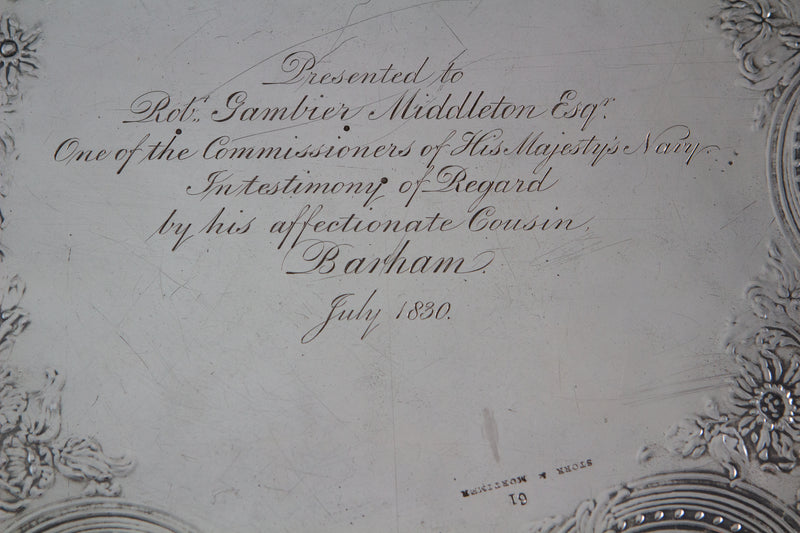 Presented to
Robt. Gambier Middleton Esqr.
One of the Commissioners of His Majesty's Navy
In testimony of Regard
by his affectionate Cousin,
Barham.
July 1830.
STORR & MORTIMER
61